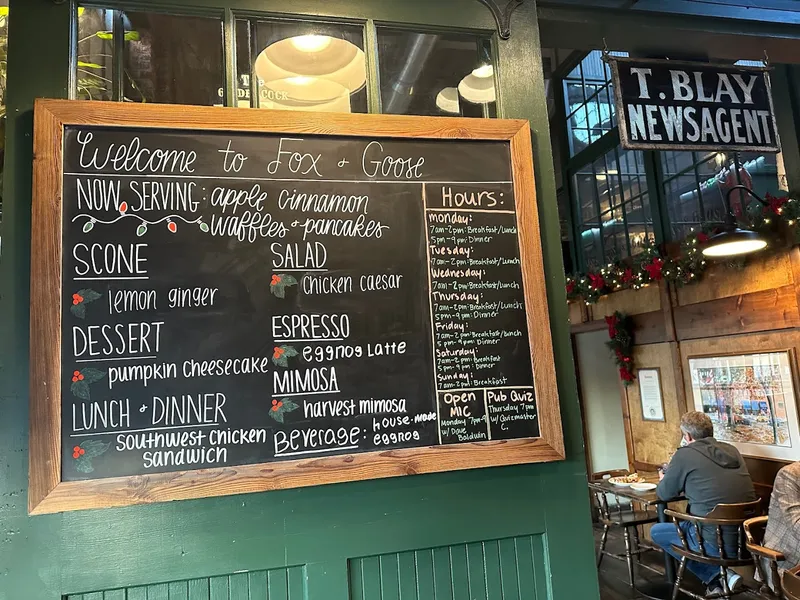 Welcome to Fox & Goose
NOW SERVING: apple cinnamon
waffles & pancakes
SCONE
lemon ginger
DESSERT
pumpkin cheesecake
LUNCH & DINNER
southwest chicken
sandwich
SALAD
Chicken caesar
ESPRESSO
eggnog Latte
MIMOSA
harvest mimosa
Beverage: house-made
eggnog
Hours:
monday:
7am-2pm: Breakfast/Lunch
5pm-9pm: Dinner
Tuesday:
7am-2pm: Breakfast/Lunch
Wednesday:
7am-2pm: Breakfast/Lunch
Thursday:
7am-2pm: Breakfast/Lunch
5pm-9pm: Dinner
Friday:
7am-2pm: Breakfast/Lunch
5pm-9pm: Dinner
Saturday:
7am-2pm: Breakfast
5pm-9pm: Dinner
Sunday:
7am-2pm: Breakfast
Open
MIC
Monday 7pm-9
w/ Dave
Baldwin
Pub Quiz
Thursday 7pm
w/ Quizmaster
C.
T. BLAY
NEWSAGENT